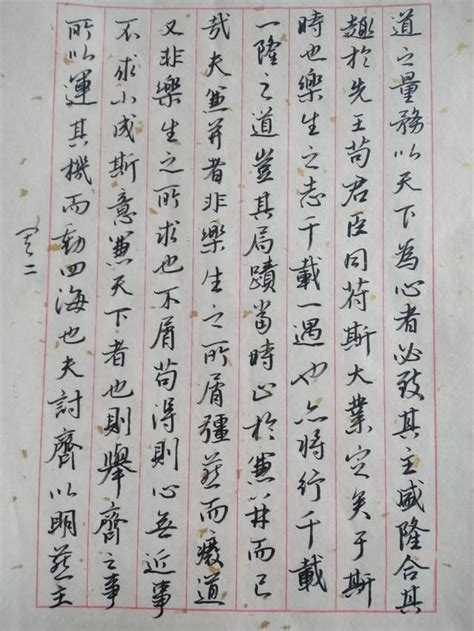 道之量務以天下為心者必致其主盛隆合其
趣於先王苟君臣同苻斯大業定矣于斯
時也樂生之志千載一遇也亦將行千載
一隆之道豈其局蹟當時止於兼并而已
哉夫兼并者非樂生之所屑彊燕而廢道
又非樂生之所求也不屑苟得則心無近事
不求小成斯意兼天下者也則舉齊之事
所以運其機而動四海也夫討齊以明燕主
二